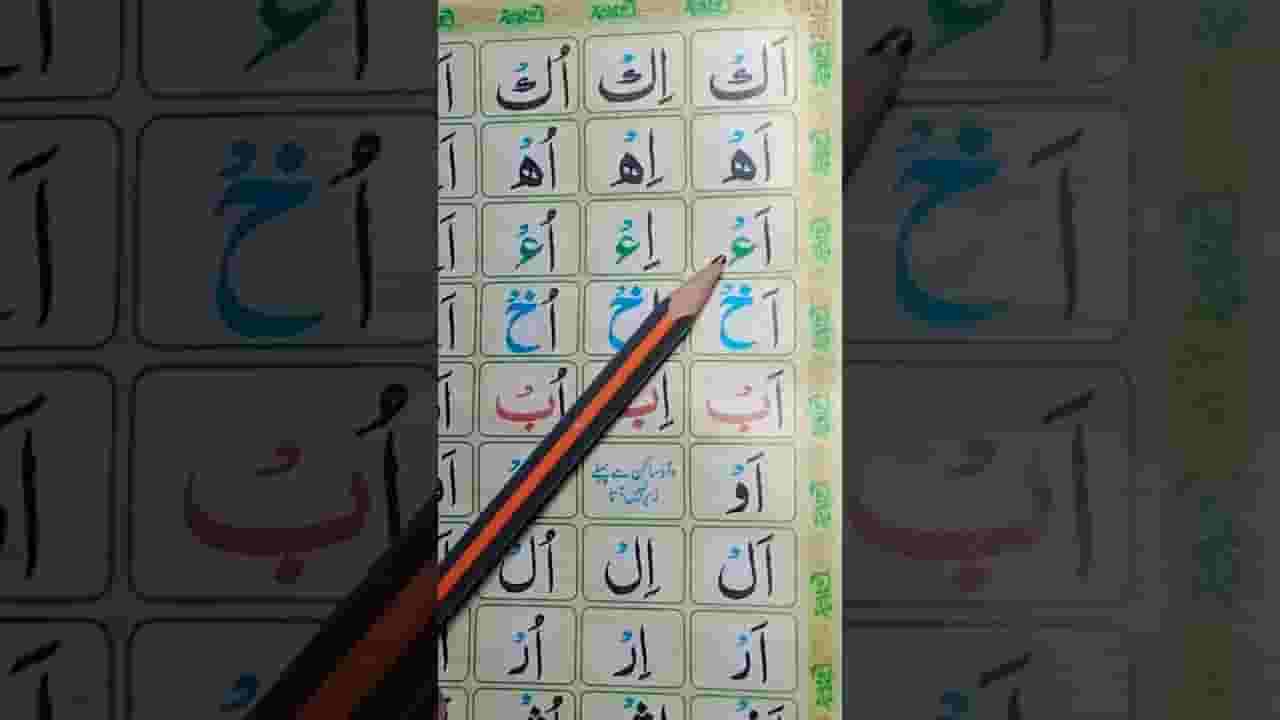 اَكْ اِكْ اُكْ
اَهْ اِهْ اُهْ
اَءْ اِءْ اُءْ
اَخْ اِخْ اُخْ
اَبْ اِبْ اُبْ
اَوْ
واؤ ساکن سے پہلے
زیر نہیں آتا
اَلْ اِلْ اُلْ
اَرْ اِرْ اُرْ